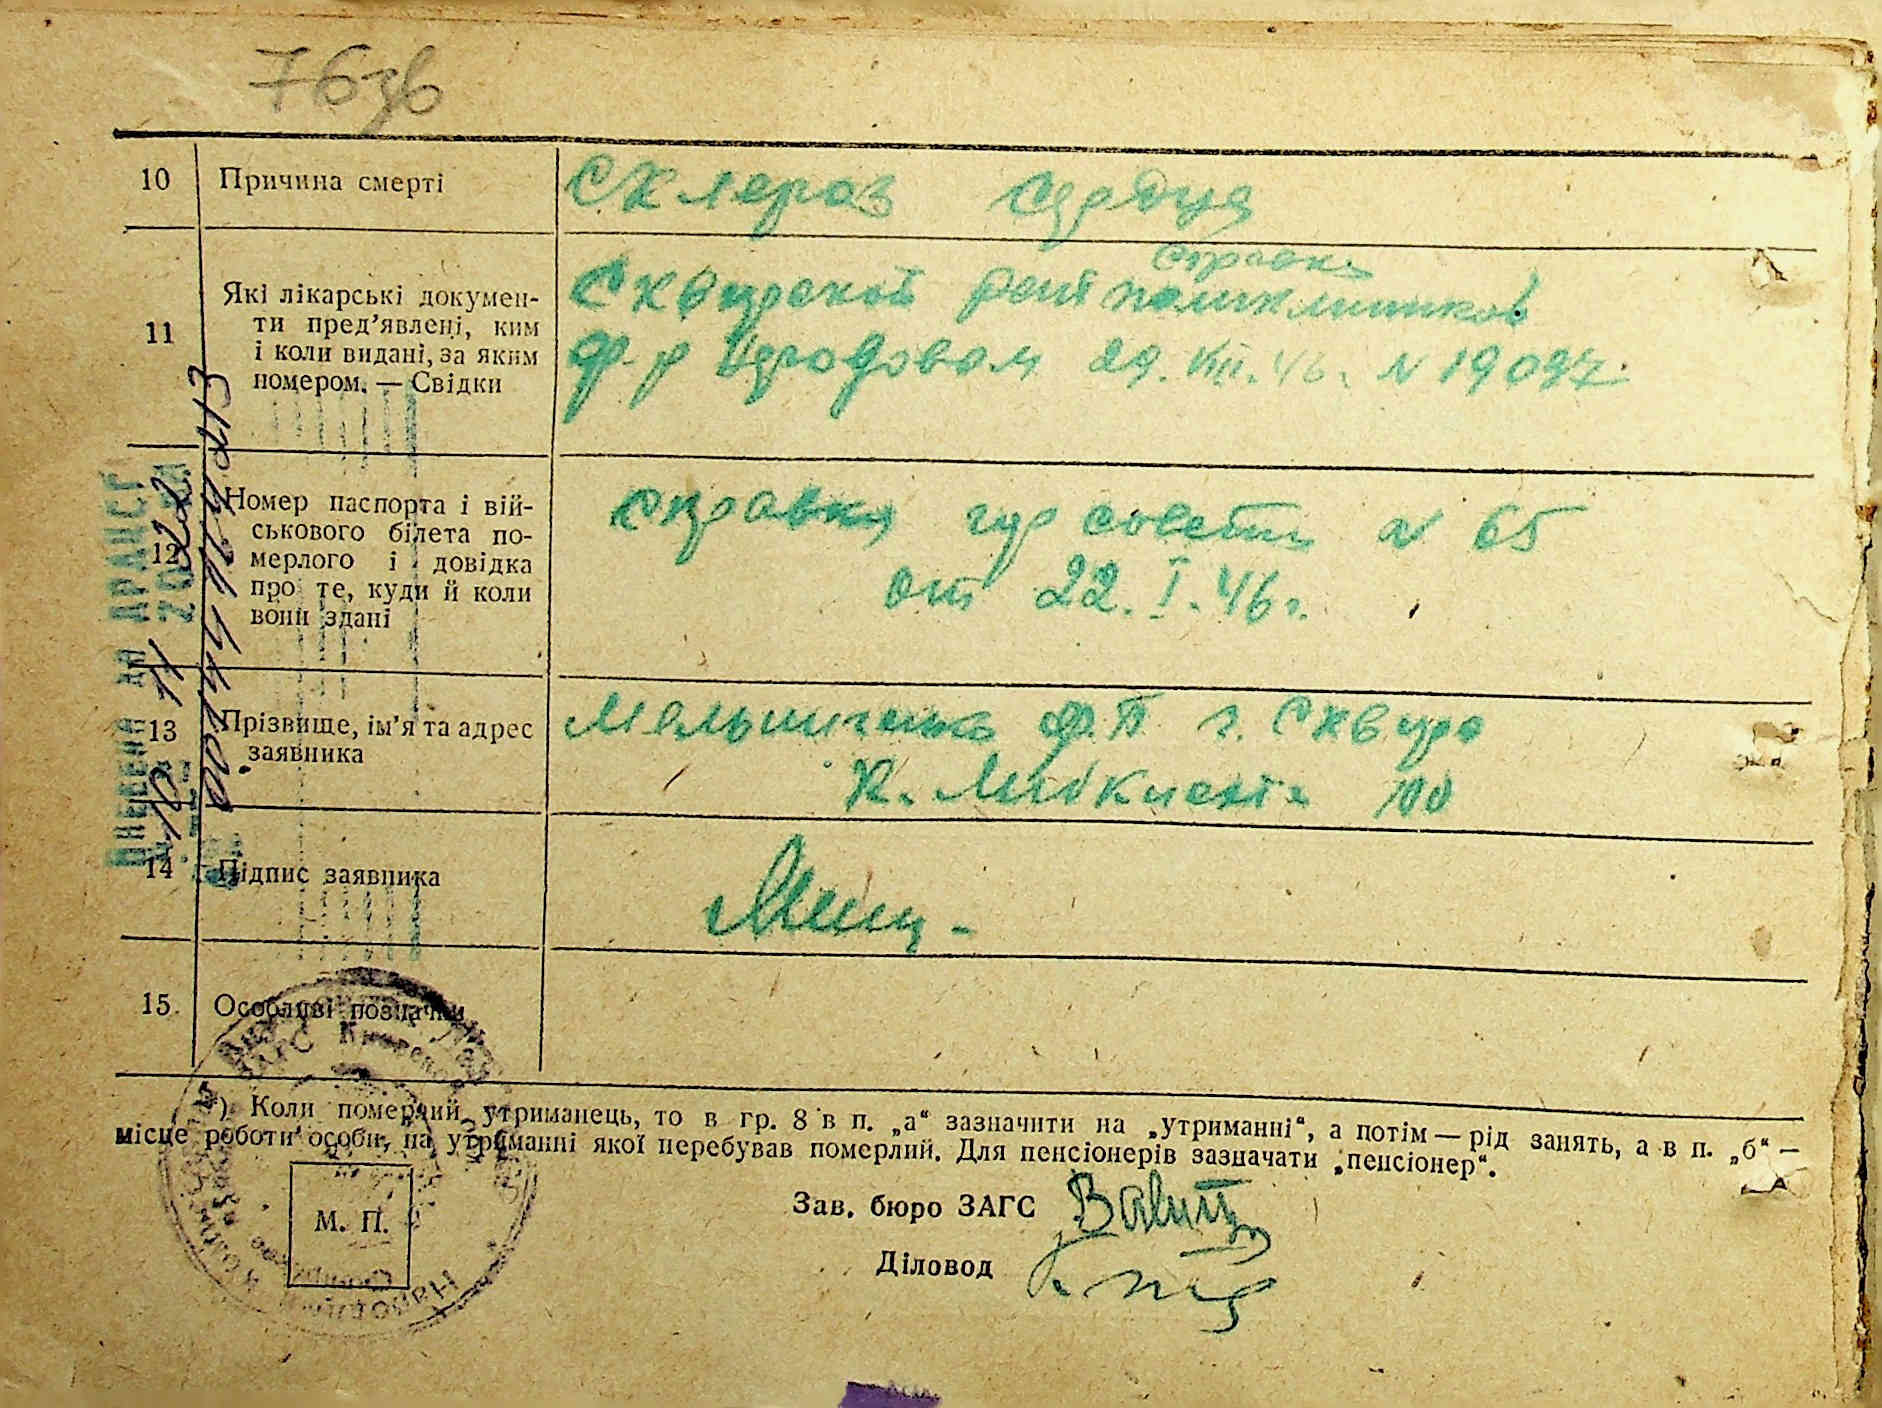 76зв
10 Причина смерті
Склероз сердца
11 Які лікарські докумен-
ти пред'явлені, ким
і коли видані, за яким
номером. — Свідки
справка
Сквирской рай поликлиники
29. VIII. 46 г. N 19097
12 Номер паспорта і вій-
ськового білета по-
мерлого і довідка
про те, куди й коли
вони здані
Справка гор совета N 65
от 22. I. 46 г.
13 Прізвище, ім'я та адрес
заявника
Мельниченко Ф.П г. Сквира
К. Либкнехта 100
14 Підпис заявника
15. Особливі позначки
*) Коли померлий утриманець, то в гр. 8 в п. „а“ зазначити на „утриманні“, а потім — рід занять, а в п. „б“ —
місце роботи особи, на утриманні якої перебував померлий. Для пенсіонерів зазначати „пенсіонер“.
Зав. бюро ЗАГС
Діловод
М. П.